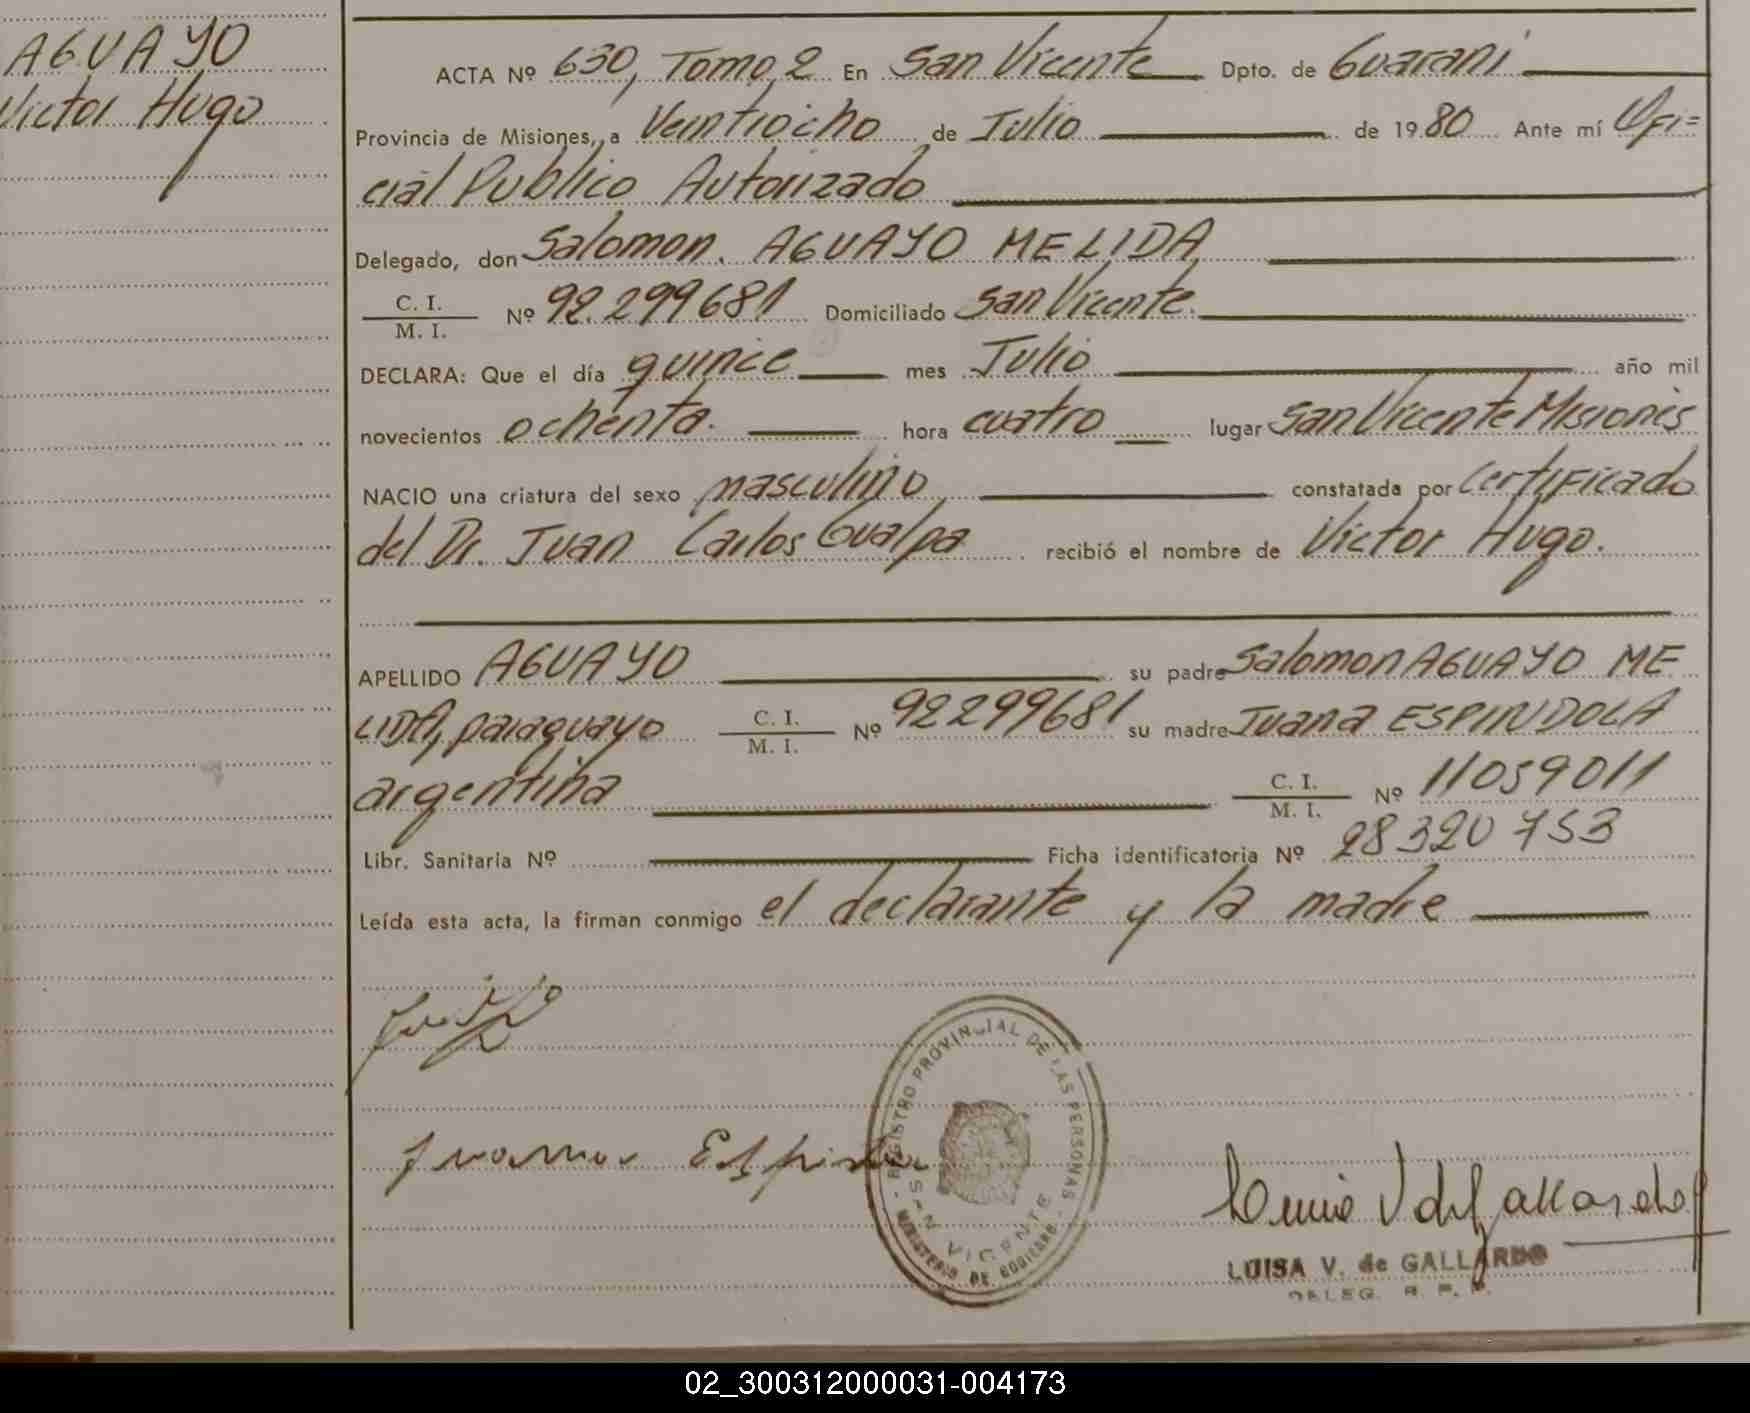 AGUAYO
Victor Hugo
ACTA Nº 630, Tomo 2 En San Vicente Dpto. de Guarani
Provincia de Misiones, a Veintiocho de Julio de 1980 Ante mí Ofi=
cial Publico Autorizado
Delegado, don Salomon AGUAYO MELIDA
C. I.
M. I. Nº 92.299681 Domiciliado San Vicente.
DECLARA: Que el día quince mes Julio año mil
novecientos ochenta. hora cuatro lugar San Vicente Misiones
NACIO una criatura del sexo masculino constatada por Certificado
del Dr. Juan Carlos Gualpa recibió el nombre de Victor Hugo.
APELLIDO AGUAYO su padre Salomon AGUAYO ME
LIDA, paraguayo C. I. M. I. Nº 92299681 su madre Juana ESPINDOLA
argentina C. I. M. I. Nº 11059011
Libr. Sanitaria Nº Ficha identificatoria Nº 28320753
Leída esta acta, la firman conmigo el declarante y la madre
REGISTRO PROVINCIAL DE LAS PERSONAS
SAN VICENTE
MINISTERIO DE GOBIERNO
LUISA V. de GALLARDO
DELEG. R. P. P.
02_300312000031-004173